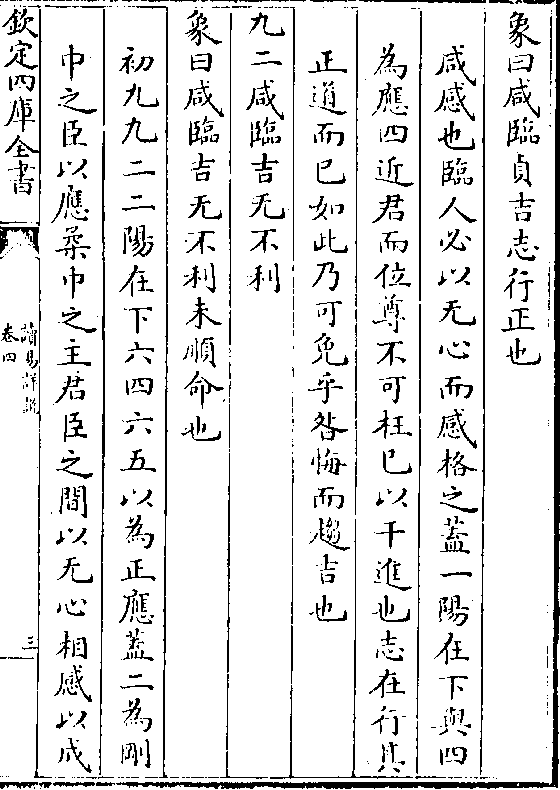 象曰咸臨貞吉志行正也
咸感也臨人必以无心而感格之蓋一陽在下與四
為應四近君而位尊不可枉已以干進也志在行其
正道而已如此乃可免乎咎悔而趨吉也
九二咸臨吉无不利
象曰咸臨吉无不利未順命也
初九九二二陽在下六四六五以為正應蓋二為剛
中之臣以應柔中之主君臣之間以无心相感以成
欽定四庫全書
讀易詳說
卷四
三